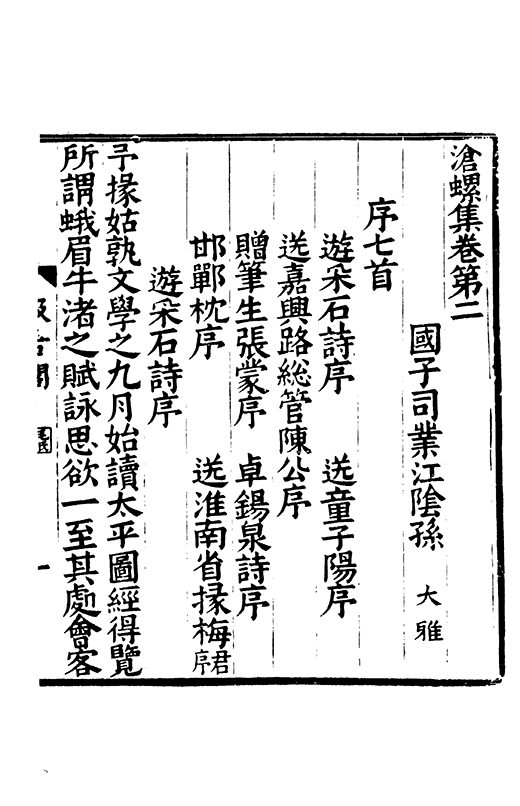 滄螺集卷第二
國子司業江陰孫　大雅
序七首
遊采石詩序　送童子陽序
送嘉興路総管陳公序
贈筆生張蒙序　卓錫泉詩序
邯鄲枕序　送淮南省掾梅君序
遊采石詩序
予掾姑孰文學之九月始讀太平圖經得覽
所謂蛾眉牛渚之賦詠思欲一至其處會客